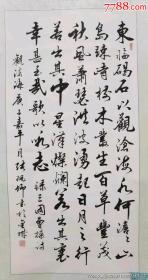 東臨碣石以觀滄海水何澹澹山
島竦峙樹木叢生百草豐茂
秋風蕭瑟洪波涌起日月之行
若出其中星漢燦爛若出其裏
幸甚至哉歌以咏志 錄三國曹操詩
觀滄海
7788.com